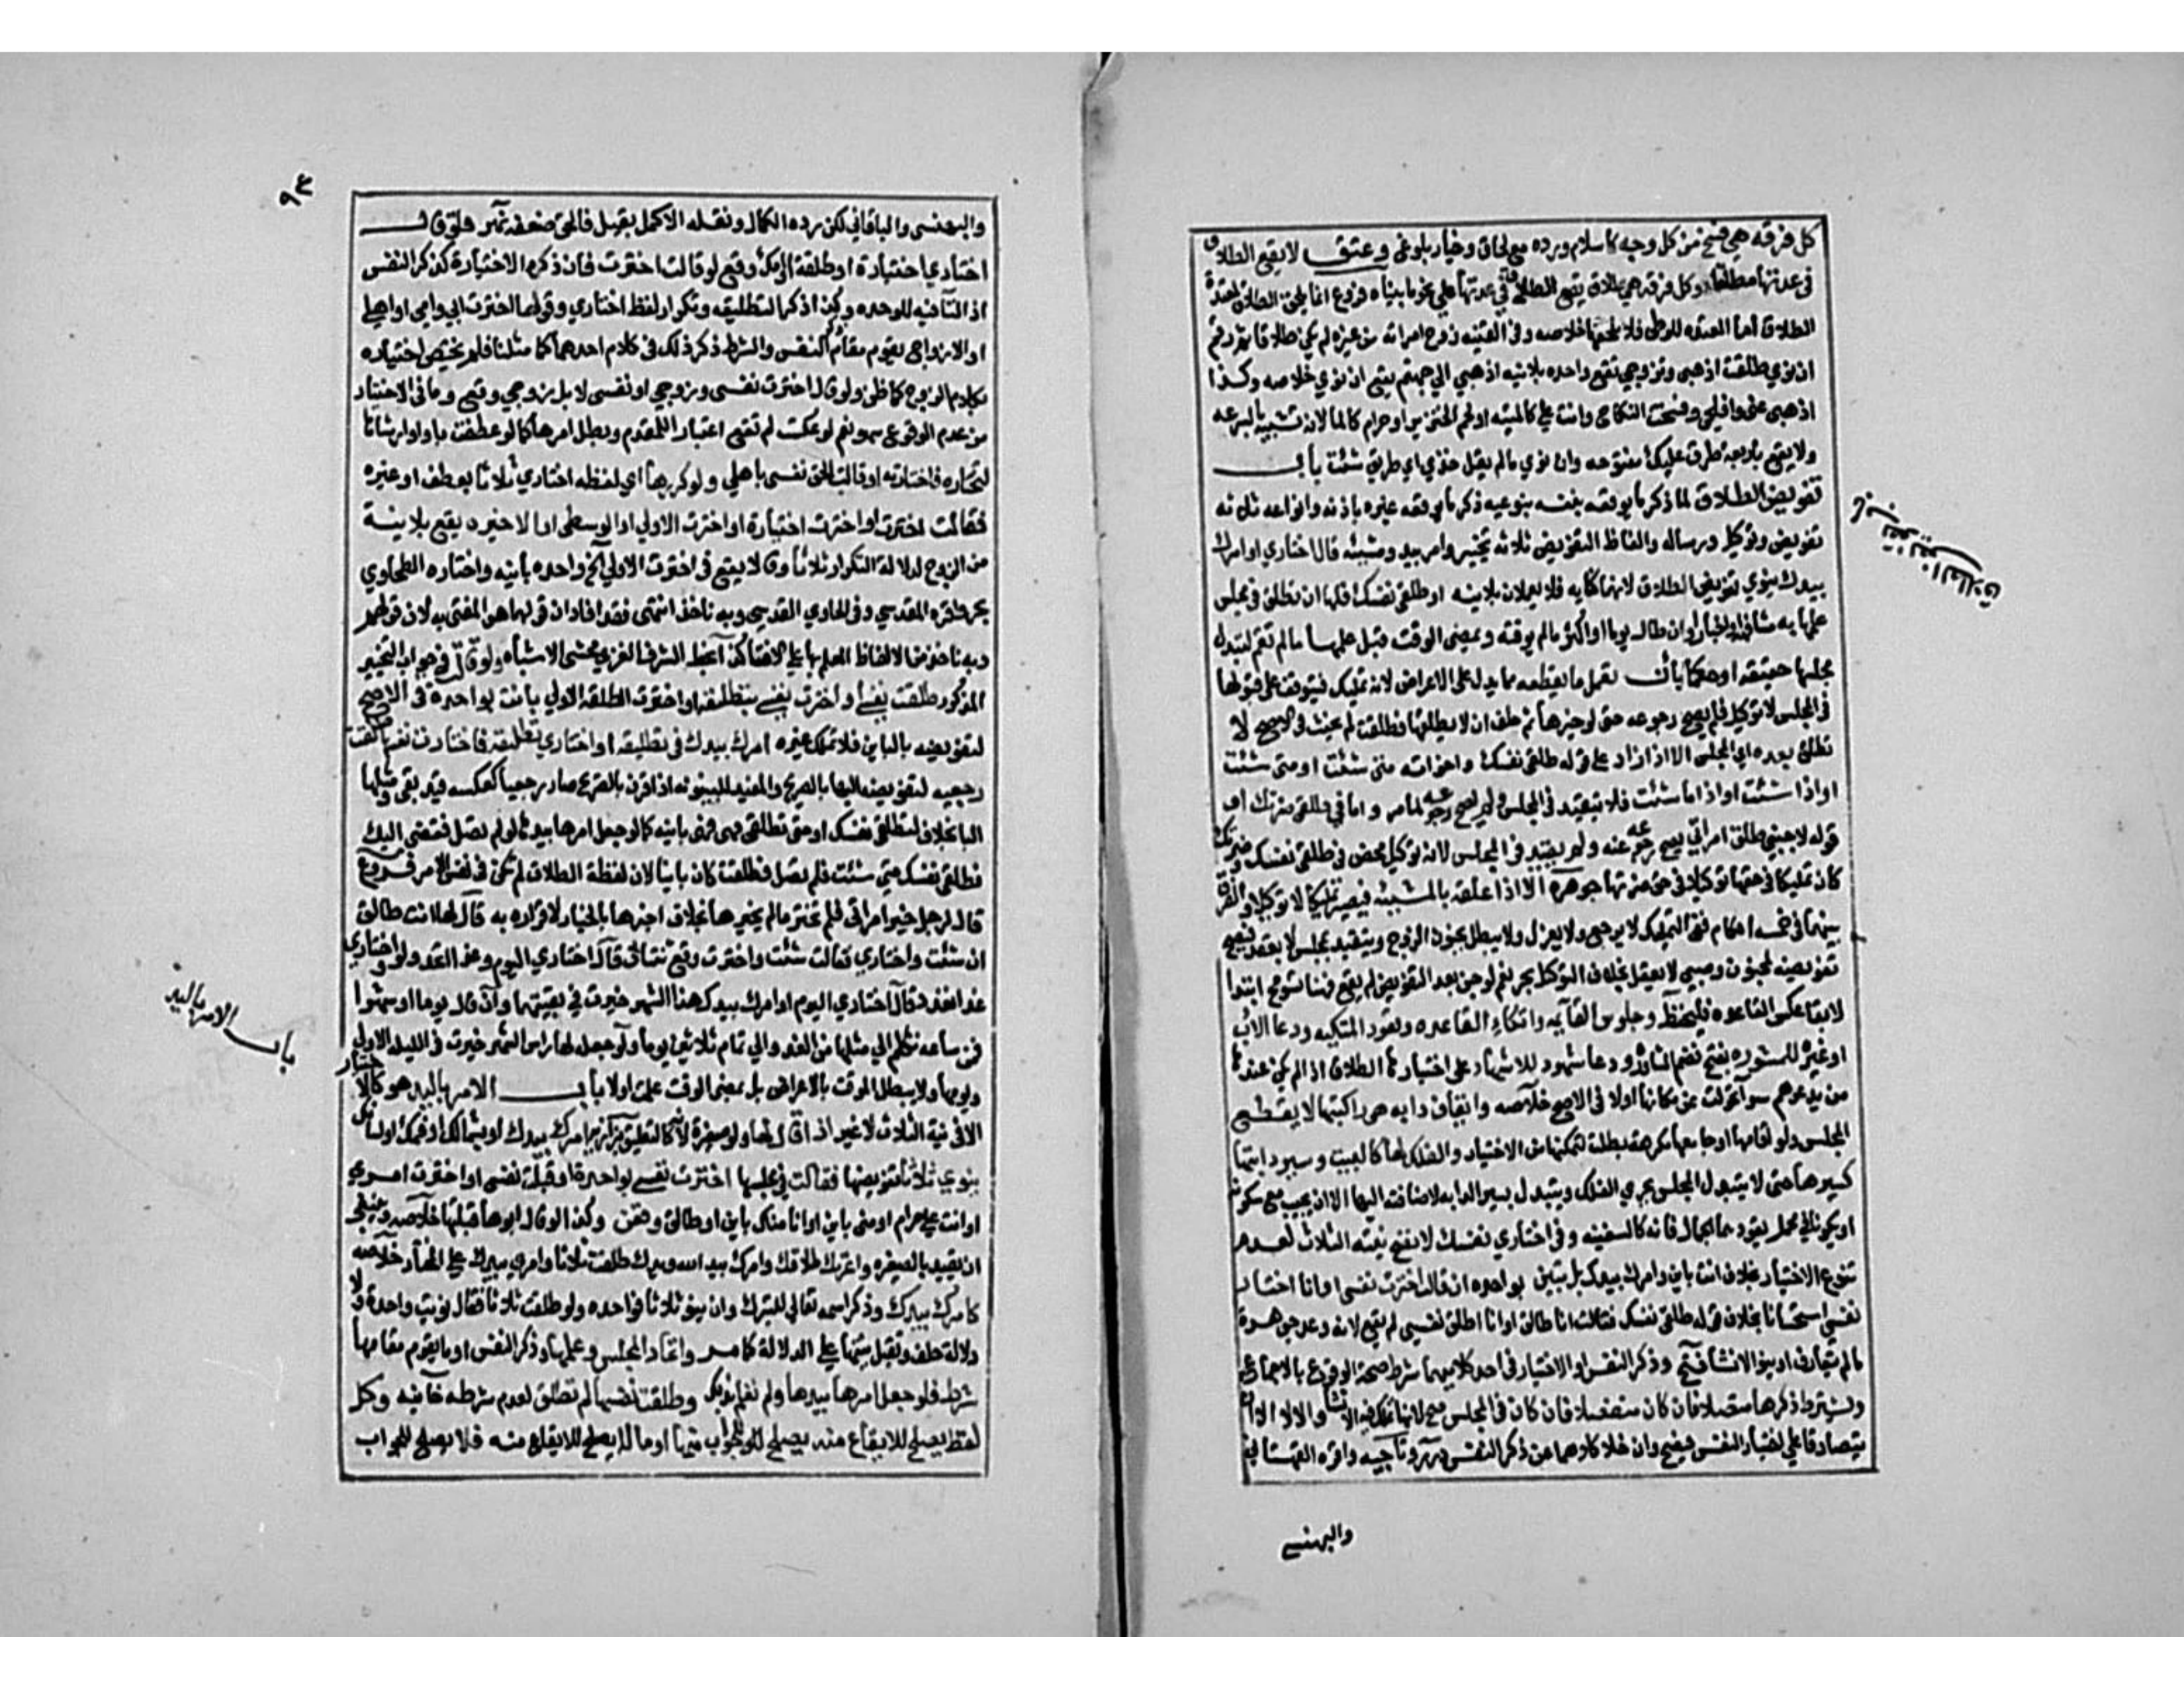 كل فرقة هي فسخ من كل وجه كاسلام ورده مع لحاق وخيار بلوغ وعتق لا يقع الطلاق
في عدتها مطلقا وكل فرقة هي طلاق يقع الطلاق في عدتها علي نحو ما بيناه فروع انما يلحق الطلاق لمعتدة
الطلاق اما المعتده للوطي فلا يلحقها خلاصه وفي القنيه زوج امراته من غيره لم يكن طلاقا ثم رقم
ان نوي طلقت اذهبي وتزوجي تقع واحده بلا نيه اذهبي الي جهنم يقع ان نوي خلاصه وكذا
اذهبي عني وافلحي وفسخت النكاح وانت علي كالميته او لحم الخنزير او حرام كالما لانه تشبيه بالسرعه
ولا يقع باربعة طرق عليك مفتوحه وان نوي مالم يقل خذي اي طريق شئت باب
تفويض الطلاق لما ذكر ما يوقعه بنفسه بنوعيه ذكر ما يوقعه غيره باذنه وانواعه ثلاثه
تفويض وتوكيل ورساله والفاظ التفويض ثلاثه تخيير وامر بيد ومشيئه قال اختاري او امرك
بيدك ينوي تفويض الطلاق لانهما كنايه فلا يعملان بلا نيه او طلقي نفسك فلها ان تطلق في مجلس
علمها به مشافهة او اخبارا وان طال يوما او اكثر مالم يوقته ويمضي الوقت قبل علمها ما لم تقم لتبدل
مجلسها حقيقة او حكما بان تعمل ما يقطعه مما يدل علي الاعراض لانه تمليك فيتوقف علي قبولها
في المجلس لا توكيل فلم يصح رجوعه حتى لو خيرها ثم حلف ان لا يطلقها فطلقت لم يحنث في الاصح لا
تطلق بعده اي المجلس الا اذا زاد علي قوله طلقي نفسك واخواته متى شئت او متى ما شئت
او اذا شئت او اذا ما شئت فلا يتقيد في المجلس ولم يصح رجوعه لما مر واما في طلقي ضرتك او
قوله لاجنبي طلق امراتي يصح رجوعه عنه ولم يتقيد في المجلس لانه توكيل محض في طلقي نفسك وضرتك
كان تمليكا في حقها توكيلا في حق ضرتها جوهرة الا اذا علقه بالمشيئه فيصير تمليكا لا توكيلا والفرق
بينهما في خمسه احكام ففي التمليك لا يرجع ولا يعزل ولا يبطل بجنون الزوج ويتقيد بمجلس لا بعقل فيصح
تفويضه لمجنون وصبي لا يعقل بخلاف التوكيل بحر نعم لو جن بعد التفويض لم يقع فهنا تسومح ابتدا
لا بقا عكس القاعده فليحفظ وجلوس القايمه واتكاء القاعده وقعود المتكيه ودعا الاب
او غيره للمشوره بفتح فضم المشاوره ودعا شهود للاشهاد علي اختيارها الطلاق اذا لم يكن عندها
من يدعوهم سوا تحولت عن مكانها او لا في الاصح خلاصه وايقاف دابه هي راكبتها لا يقطع
المجلس ولو اقامها او جامعها مكرهة بطلت لتمكنها من الاختيار والفلك لها كالبيت وسير دابتها
كسيرها حتى لا يتبدل المجلس بجري الفلك ويتبدل بسير الدابه لاضافته اليها الا ان تجيب مع سكوته
او يكونا في محمل يقودهما الجمال فانه كالسفينه وفي اختاري نفسك لا تصح نيته الثلاث لعدم
تنوع الاختيار بخلاف انت باين وامرك بيدك بل تبين بواحده ان قالت اخترت نفسي او انا اختار
نفسي استحسانا بخلاف قوله طلقي نفسك فقالت انا طالق او انا اطلق نفسي لم يقع لانه وعد جوهرة
مالم يتعارف او ينو الانشا فتح وذكر النفس او الاختيار في احد كلاميهما شرط صحة الوقوع بالاجماع
ويشترط ذكرها متصلا فان كان منفصلا فان كان في المجلس صح لانها تملك فيه الانشا والا لا الا ان
يتصادقا علي اختيار النفس فيصح وان خلا كلامهما عن ذكر النفس درر وتاجيه واقره القهستاني
والبهنسي
تفويض الطلاق
٩٣
والبهنسي والباقاني لكن رده الكمال ونقله الاكمل بقيل فالحق ضعفه نهر فلو قال
اختاري اختيارة او طلقة او امك وقع لو قالت اخترت فان ذكر الاختيارة كذكر النفس
اذ التا فيه للوحده وكذا ذكر التطليقه وتكرار لفظ اختاري وقولها اخترت ابي وامي او اهلي
او الازواج يقوم مقام النفس والشرط ذكر ذلك في كلام احدهما كما مثلنا فلم يختص اختياره
بكلام الزوج كما ظن ولو قالت اخترت نفسي وزوجي او نفسي لا بل زوجي وقع وما في الاختيار
من عدم الوقوع سهو نعم لو عكست لم تقع اعتبارا للمقدم وبطل امرها كما لو عطفت باو او ارشاها
لتختاره فاختارته او قالت الحقت نفسي باهلي ولو كررها اي لفظه اختاري ثلاثا بعطف او غيره
فقالت اخترت او اخترت اختيارة او اخترت الاولي او الوسطي او الاخيرة يقع بلا نية
من الزوج لدلالة التكرار ثلاثا وقالا يقع في اخترت الاولي الخ واحده باينه واختاره الطحاوي
بحر واقره المقدسي وفي الحاوي القدسي وبه ناخذ انتهى فقد افاد ان قولهما هو المفتي به لان قولهم
وبه ناخذ من الالفاظ المعلم بها علي الافتا كذا بخط الشرف الغزي محشي الاشباه ولو قالت في جواب التخيير
المذكور طلقت نفسي او اخترت نفسي بتطليقة او اخترت الطلقة الاولي بانت بواحده في الاصح
لتفويضه بالباين فلا تملك غيره امرك بيدك في تطليقة او اختاري تطليقة فاختارت نفسها طلقت
رجعيه لتفويضه اليها بالصريح والمفيد للبينونه اذا قرن بالصريح صار رجعيا كعكسه قيد بفي ومثلها
البا بخلاف لتطلقي نفسك او حتى تطلقي فهي باينه كما لو جعل امرها بيدها لو لم تصل نفقتي اليك
فطلقي نفسك متى شئت فلم تصل فطلقت كان باينا لان لفظة الطلاق لم تكن في نفس الامر فروع
قال لرجل خير امراتي فلم تختر مالم يخيرها بخلاف اخبرها بالخيار لاقراره به قال لها انت طالق
ان شئت واختاري فقالت شئت واخترت وقع ثنتان قال اختاري اليوم وغدا اتحد ولو واختاري
غدا تعدد قال اختاري اليوم او امرك بيدك هذا الشهر خيرت في بقيتهما وان قال يوما او شهرا
فمن ساعة تكلم الي مثلها من الغد والي تمام ثلاثين يوما ولو جعل لها راس الشهر خيرت في الليله الاولي
ويومها ولا يبطل الموقت بالاعراض بل بمضي الوقت علمت اولا باب الامر باليد هو كالاختيار
الا في نية الثلاث لا غير اذا قال لها ولو صغيرة لانه كالتعليق بزازيه امرك بيدك او بشمالك او فمك او لسانك
ينوي ثلاثا تفويضها فقالت في مجلسها اخترت نفسي بواحدة او قبلت نفسي او اخترت امري
او انت علي حرام او مني باين او انا منك باين او طالق وقعن وكذا لو قال ابوها قبلتها خلاصه وينبغي
ان يقيد بالصغيره واعرتك طلاقك وامرك بيد الله ويدك طلقت ثلاثا وامري بيدك علي المختار خلاصه
كامرك بيدك وذكر اسمه تعالي للتبرك وان لم ينو ثلاثا فواحده ولو طلقت ثلاثا فقال نويت واحدة ولا
دلالة حلف وتقبل بينتها علي الدلالة كما مر واتحاد المجلس وعلمها وذكر النفس او ما يقوم مقامها
شرط فلو جعل امرها بيدها ولم تعلم بذلك وطلقت نفسها لم تطلق لعدم شرطه خانيه وكل
لفظ يصلح للايقاع منه يصلح للجواب منها وما لا يصلح للايقاع منه فلا يصلح للجواب
باب الامر باليد